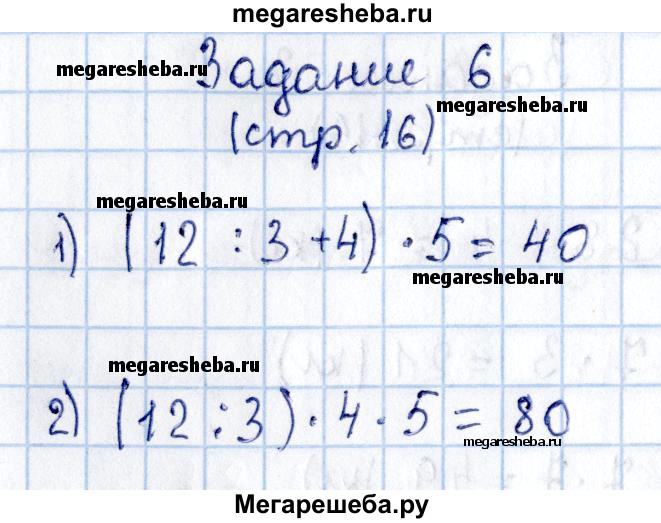 megaresheba.ru
Задание 6
megaresheba.ru
megaresheba.ru
(стр. 16)
megaresheba.ru
1) (12 : 3 + 4) · 5 = 40
megaresheba.ru
megaresheba.ru
2) (12 : 3) · 4 · 5 = 80
megaresheba.ru
Мегарешеба.ру